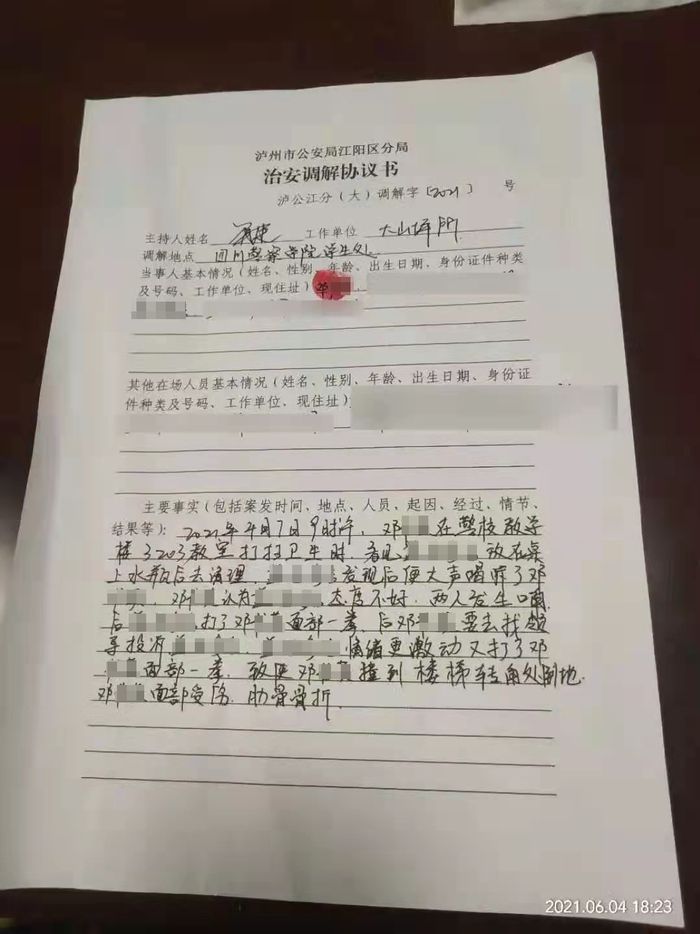 泸州市公安局江阳区分局
治安调解协议书
泸公江分（大）调解字〔2021〕 号
主持人姓名 工作单位 大山坪所
调解地点 四川警察学院学生处
当事人基本情况（姓名、性别、年龄、出生日期、身份证件种类
及号码、工作单位、现住址）邓
其他在场人员基本情况（姓名、性别、年龄、出生日期、身份证
件种类及号码、工作单位、现住址）
主要事实（包括案发时间、地点、人员、起因、经过、情节、
结果等）：2021年4月7日9时许，邓 在警校教学
楼3203教室打扫卫生时，看见 放在桌
上水瓶后去清理， 发现后便大声喝斥了邓
，邓 认为 态度不好，两人发生口角
后 打了邓 面部一拳，后邓 要去找领
导投诉 ， 情绪更激动又打了邓
面部一拳，致使邓 撞到楼梯转角处倒地
邓 面部受伤，肋骨骨折。
2021.06.04 18:23